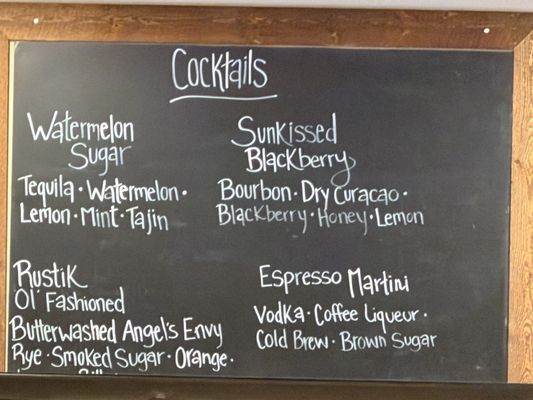 Cocktails
Watermelon
Sugar
Tequila · Watermelon ·
Lemon · Mint · Tajin
Sunkissed
Blackberry
Bourbon · Dry Curacao ·
Blackberry · Honey · Lemon
Rustik
Ol' Fashioned
Butterwashed Angel's Envy
Rye · Smoked Sugar · Orange ·
Espresso Martini
Vodka · Coffee Liqueur ·
Cold Brew · Brown Sugar